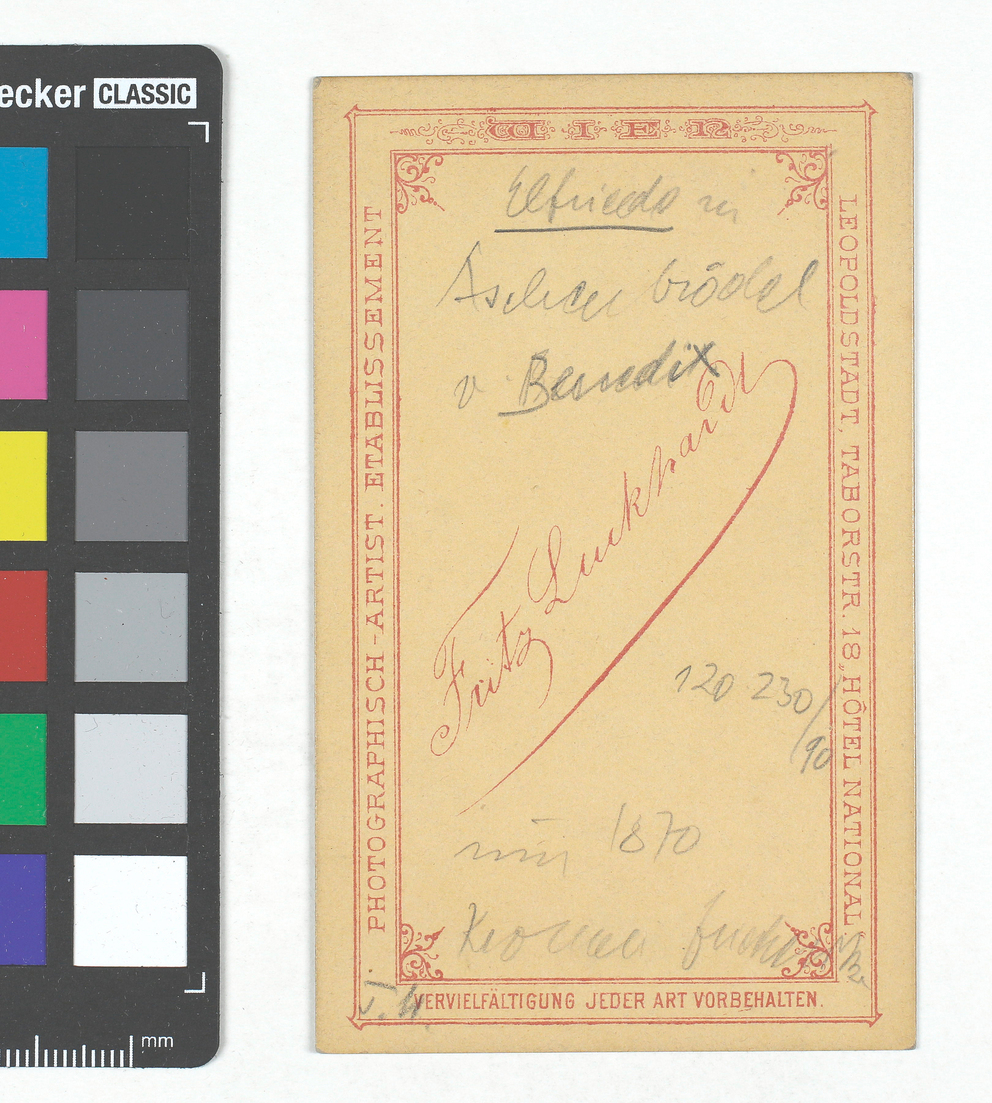 ecker CLASSIC
WIEN
PHOTOGRAPHISCH-ARTIST. ETABLISSEMENT
LEOPOLDSTADT, TABORSTR. 18, HÔTEL NATIONAL.
Elfriede in
Aschenbrödel
v. Benedix
Fritz Luckhardt
120 230/
90
1870
VERVIELFÄLTIGUNG JEDER ART VORBEHALTEN.
mm